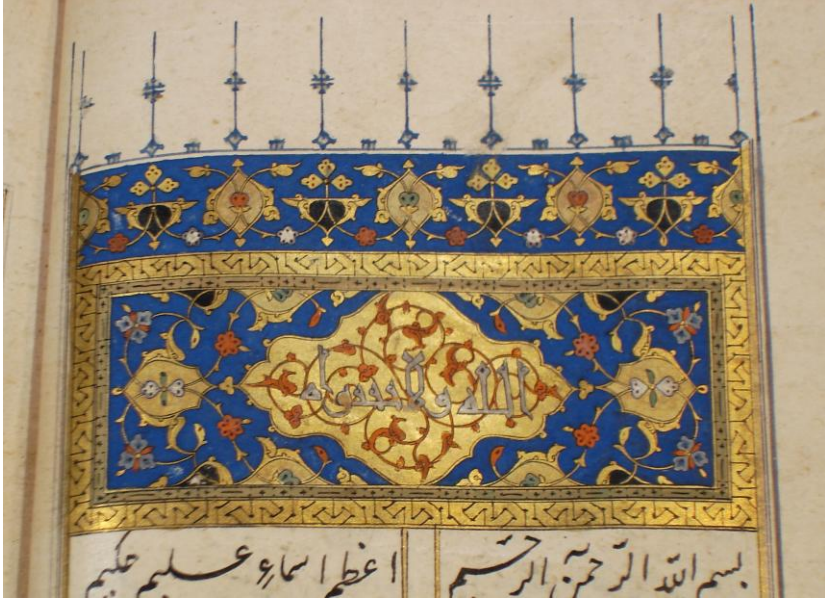 الله ولا
بسم الله الرّحمن الرحيم اعظم اسماء عليم حكيم